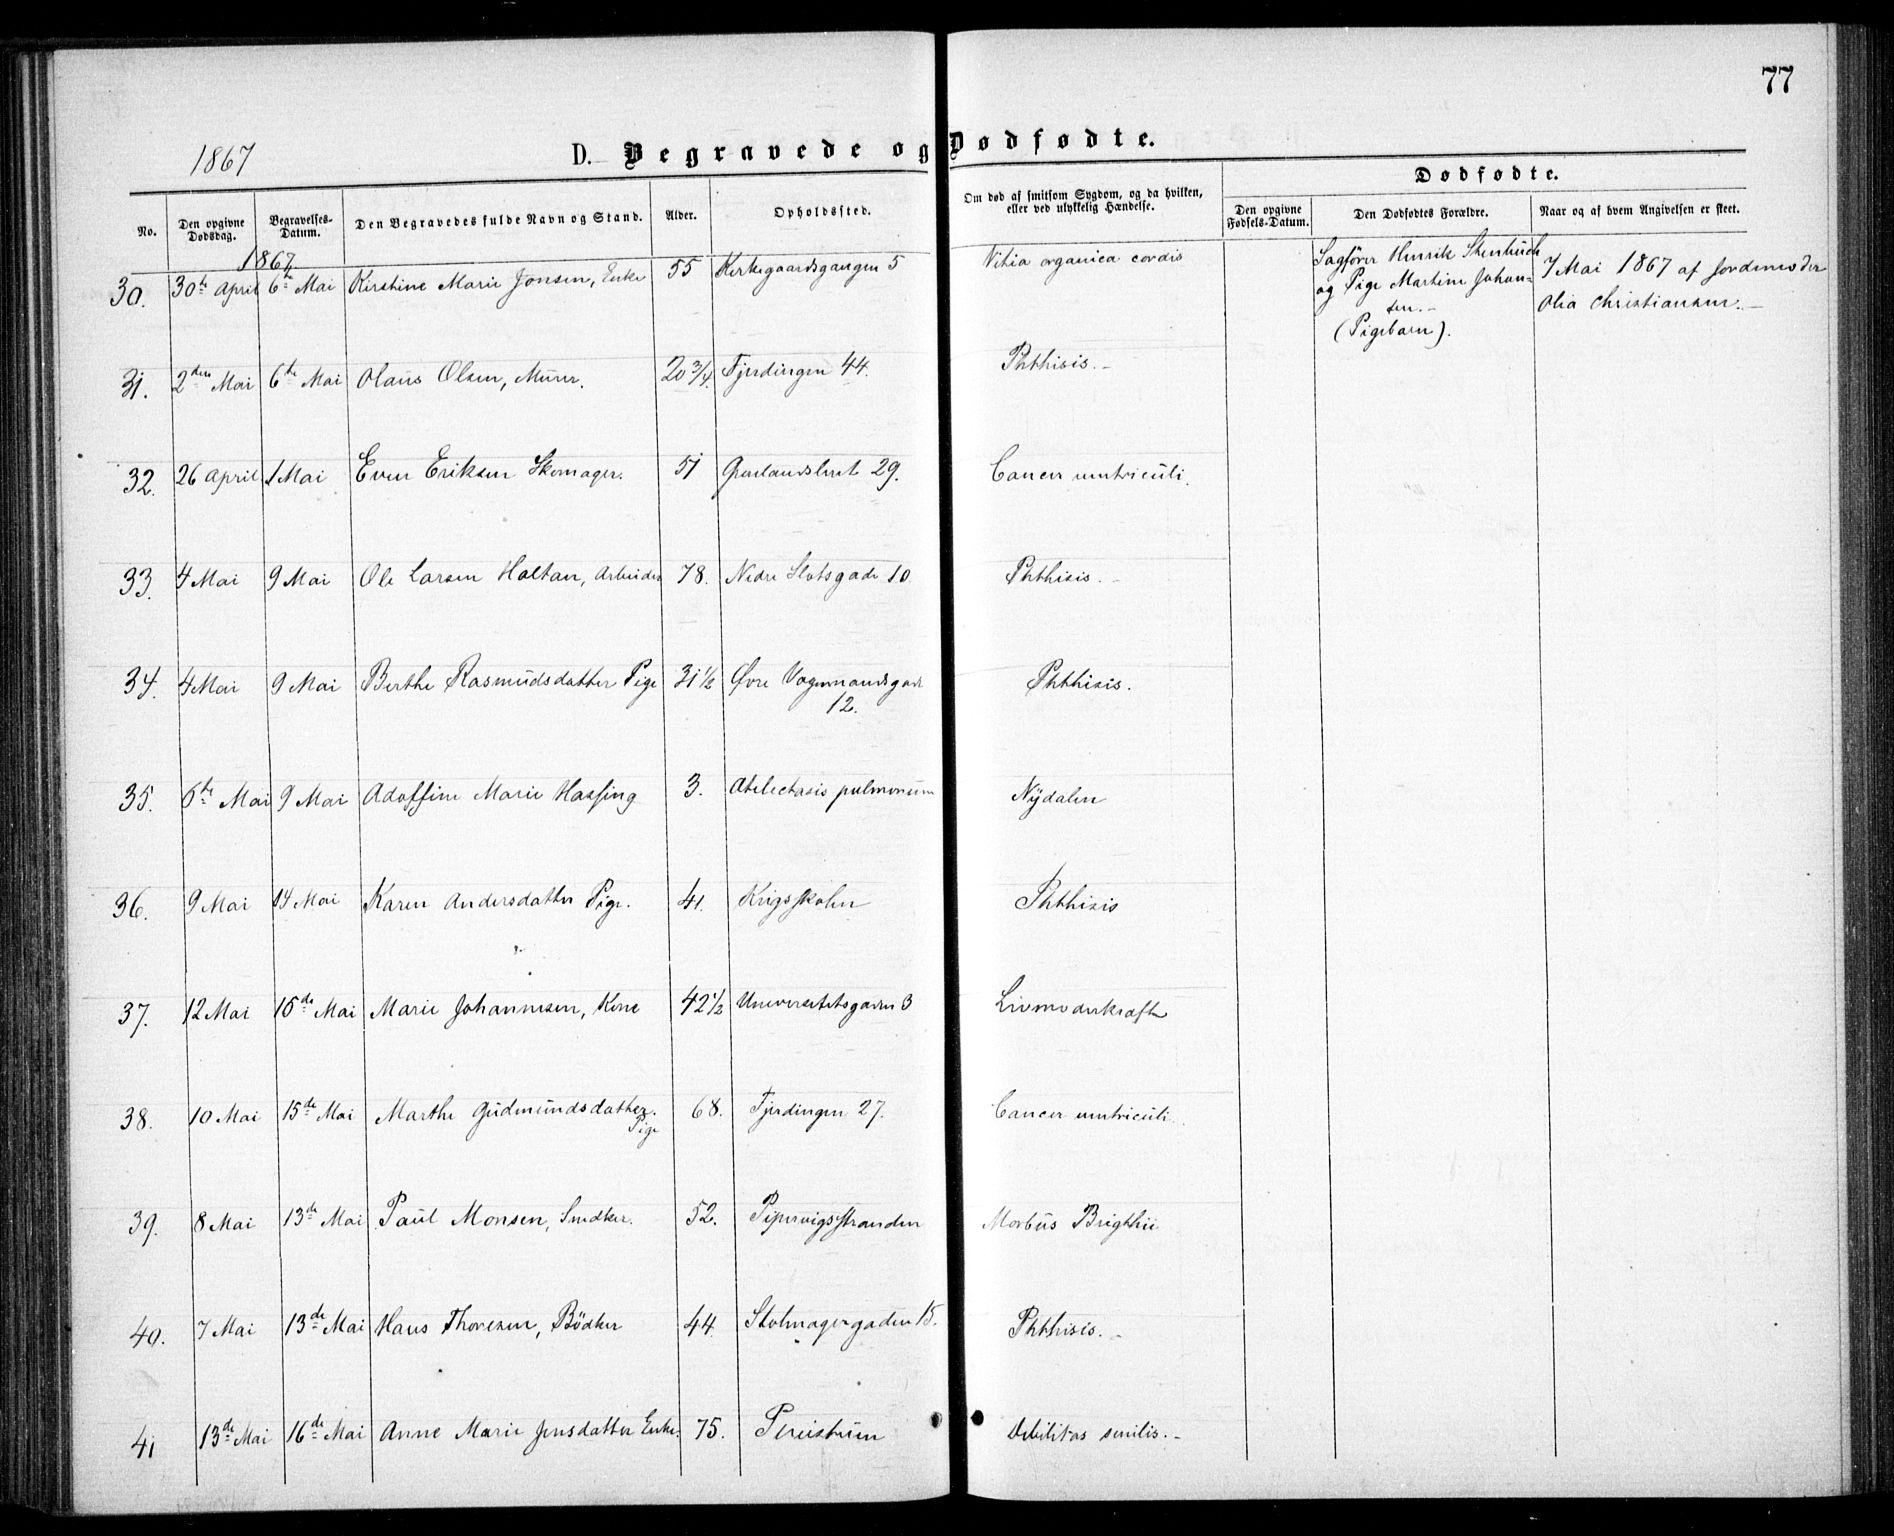 77
1867
D. Begravede og Dødfødte.
No.
Den opgivne Dødsdag.
Begravelses-Datum.
Den Begravedes fulde Navn og Stand.
Alder.
Opholdssted.
Om død af smitsom Sygdom, og da hvilken, eller ved ulykkelig Hændelse.
Dødfødte.
Den opgivne Fødsels-Datum.
Den Dødfødtes Forældre.
Naar og af hvem Angivelsen er skeet.
1867
30. 30te April 6te Mai Kirstine Marie Jonsen, Enke 55 Kirkegaardsgangen 5 Vitia organica cordis
Sagfører Henrik Stenbuch
og Pige Martine Johan-
sen.-
(Pigebarn).
7 Mai 1867 af Jordemoder
Olia Christiansen.-
31. 2den Mai 6te Mai Olaus Olsen, Murer. 20 3/4. Fjerdingen 44. Phthisis.-
32. 26 April 1 Mai Even Eriksen Skomager. 51 Grønlandsleret 29. Cancer ventriculi.
33. 4 Mai 9 Mai Ole Larsen Holtan, Arbeider 78. Nedre Slotsgade 10 Phthisis.-
34. 4 Mai 9 Mai Berthe Rasmudsdatter Pige 31 1/2 Øvre Vognmandsgade
12. Phthisis.
35. 6te Mai 9 Mai Adolfine Marie Hassing 3. Atelectasis pulmonum Nÿdalen
36. 9 Mai 14 Mai Karen Andersdatter Pige. 41. Krigsskolen Phthisis
37. 12 Mai 15de Mai Marie Johannesen, Kone 42 1/2 Universitetsgaden 3 Livmoderkræft
38. 10 Mai 15de Mai Marthe Gudmundsdatter. 68. Fjerdingen 27. Cancer ventriculi.
Pige
39. 8 Mai 13de Mai Paul Monsen, Snedker. 52. Pipervigsstranden Morbus Brighii
40. 7 Mai 13de Mai Hans Thoresen, Bödker 44. Stolmagergaden 15. Phthisis.-
41 13de Mai 16de Mai Anne Marie Jensdatter Enke. 75. Debilitas senilis.-